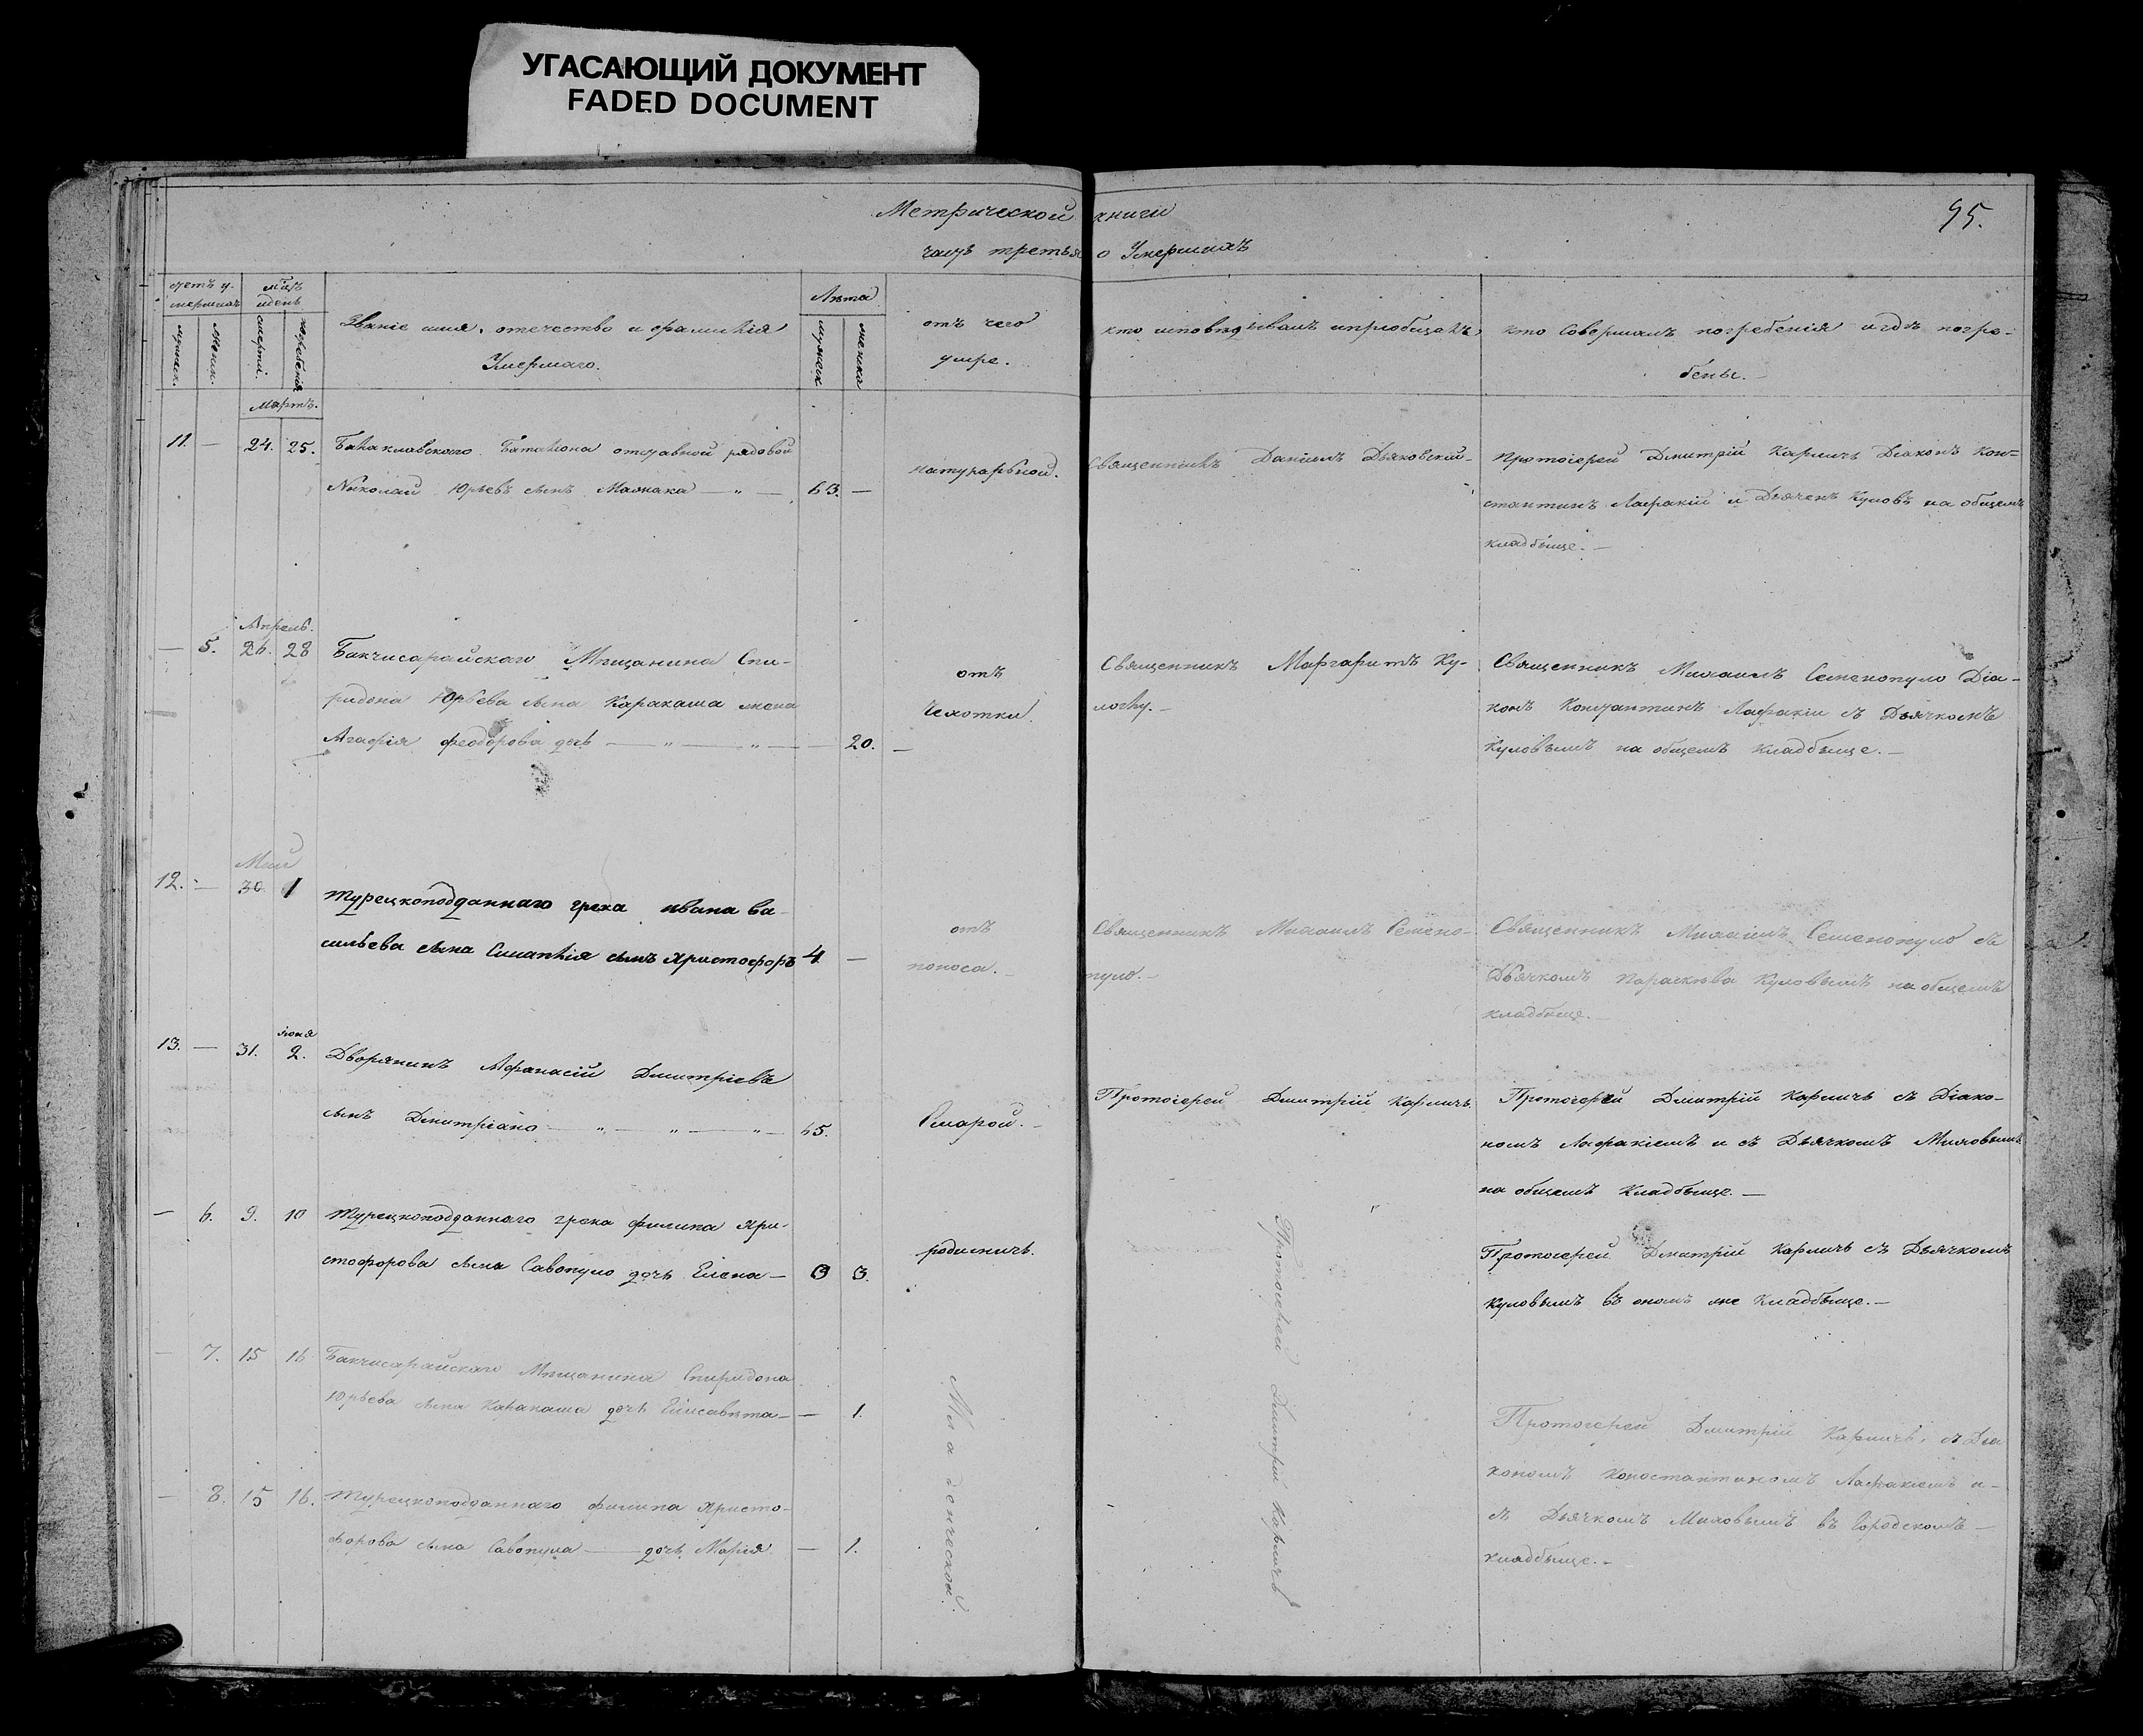 УГАСАЮЩИЙ ДОКУМЕНТ
FADED DOCUMENT
Метрической книги
95.
часть третья о Умершихъ
счетъ у-
мершихъ
мужеск.
женск.
мѣсяцъ
и день
смерти.
погребенія
Званіе имя, отечество и фамилія
Умершаго.
Лѣта
мужеск
женска
отъ чего
умре.
кто исповѣдывалъ и приобщалъ
кто Совершалъ погребенія и гдѣ погре-
бены.
Мартъ.
11. — 24. 25. Балаклавского Баталіона отставной рядовой
Николай Юрьевъ сынъ — " — 63. —
натуральной.
Священникъ Даніилъ Дьяковскій
Протоіерей Дмитрій Кармичъ Діаконъ Кон-
стантинъ Лафакій и Дьячекъ Куловъ на общемъ
кладбище. —
Апрель.
— 5. 26. 28 Бакчисарайскаго Мѣщанина Спи-
ридона Юрьева сына Каракаша жена
Агафія Феодорова дочь — " — " — 20. —
отъ
Чехотки.
Священникъ Маргаритъ Ку-
Священникъ Михаилъ Семенопуло Діа-
конъ Константинъ Лафакій съ Дьячкомъ
Куловымъ на общемъ кладбище. —
Май
12. — 30. 1 Турецкоподданнаго грека ивана ва-
сильева сына сынъ Христофоръ 4 —
отъ
поноса. —
Священникъ Михаилъ Семено-
пуло. —
Священникъ Михаилъ Семенопуло съ
Дьячкомъ Параскѣва Куловымъ на общемъ
кладбище. —
іюня
13. — 31. 2. Дворянинъ Афанасій Дмитріевъ
сынъ Дмитріано — " — " — " — 65.
Старой. —
Протоіерей Дмитрій Кармичъ.
Протоіерей Дмитрій Кармичъ съ Діако-
номъ Лафакіемъ и съ Дьячкомъ
на общемъ Кладбище. —
— 6. 9. 10 Турецкоподданнаго грека филипа Хри-
стофорова сына Савопуло дочь Елена — 3.
родимичъ.
Протоіерей Дмитрій Кармичъ
Протоіерей Дмитрій Кармичъ съ Дьячкомъ
Куловымъ въ ономъ же Кладбище. —
— 7. 15 16 Бакчисарайскаго Мѣщанина Спиридона
Юрьева сына Каракаша дочь Елисавѣта — — 1.
Младенческой.
Протоіерей Дмитрій Кармичъ, съ Діа
кономъ Константиномъ Лафакіемъ и —
съ Дьячкомъ въ Городскомъ —
кладбище. —
— 8. 15 16. Турецкоподданнаго филипа Христо-
форова сына Савопула — дочь Марія — 1.